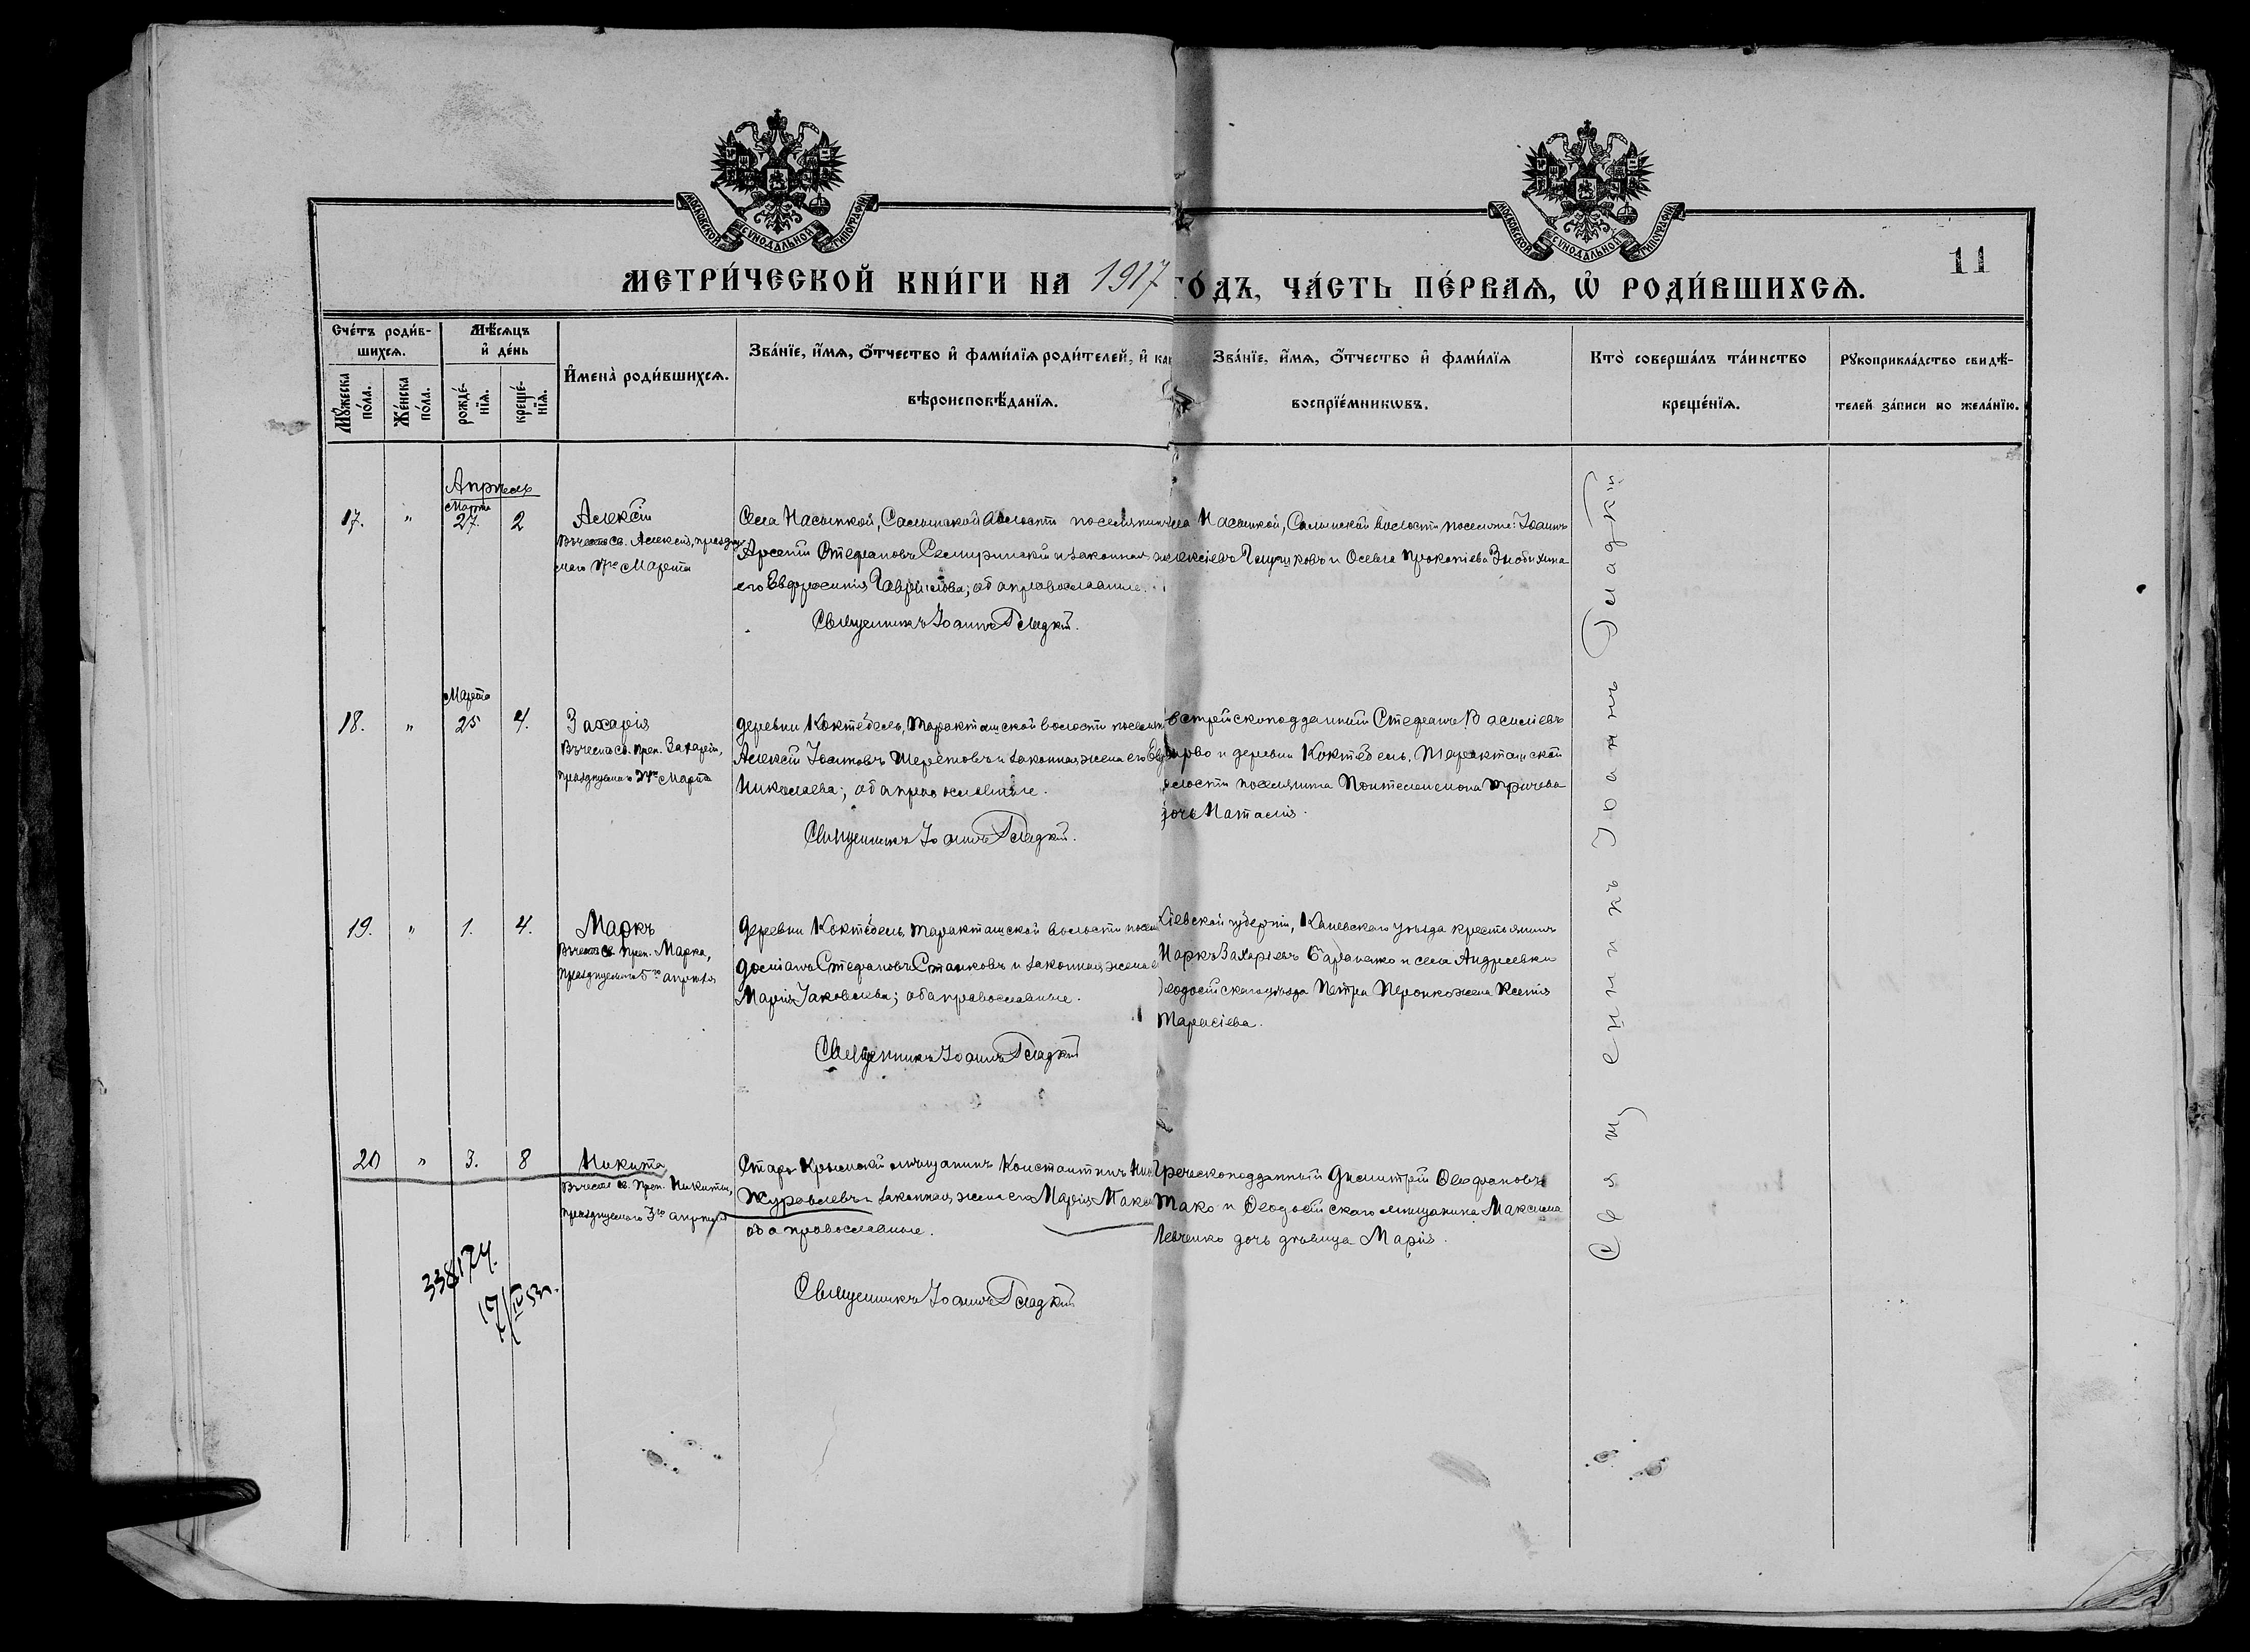 МОСКОВСКОЙ СѴНОДАЛЬНОЙ ТИПОГРАФІИ
МОСКОВСКОЙ СѴНОДАЛЬНОЙ ТИПОГРАФІИ
11
МЕТРИ́ЧЕСКОЙ КНИ́ГИ НА 1917 ГО́ДЪ, ЧА́СТЬ ПЕ́РВАѦ, Ѡ҆ РОДИ́ВШИХСѦ.
Сче́тъ роди́в-
шихсѧ.
Мꙋ́жеска по́ла.
Же́нска по́ла.
Мѣ́сѧцъ
и҆ де́нь
рожде́-
нїѧ.
креще́-
нїѧ.
И҆мена̀ роди́вшихсѧ.
Зва́нїе, и҆́мѧ, ѻ҆́тчество и҆ фами́лїѧ роди́телей, и҆ как
вѣроисповѣ́данїѧ.
Зва́нїе, и҆́мѧ, ѻ҆́тчество и҆ фами́лїѧ
воспрїе́мникѡвъ.
Кто̀ соверша́лъ та́инство
креще́нїѧ.
Рꙋкоприкла́дство свидѣ́-
телей за́писи по жела́нїю.
Апрѣль
Марта
17. " 27. 2 Алексій
Въ честь св. Алексія, праздну-
емаго 17го Марта
Села Насыпкой, Салынской волости поселянинъ
Арсеній Стефановъ и законная
его Евфросинія Гаврилова; оба православные.
Священникъ Іоаннъ Гладкій.
Насыпкой, Салынской волости поселяне: Іоаннъ
и Ѳекла Прокопіева Знобихина
Марта
18. " 25 4. Захарія
Въ честь св. преп. Захаріи,
празднуемаго 24го Марта
Деревни Коктебель, Таракташской волости
Алексій Іоанновъ Шереметовъ и законная жена его
Николаева; оба православные.
Священникъ Іоаннъ Гладкій.
Стефанъ Василіевъ
и деревни Коктебель, Таракташской
волости поселянина Пантелеимона
дочь Наталія.
19. " 1. 4. Маркъ
Въ честь св. преп. Марка,
празднуемаго 5го апрѣля
Деревни Коктебель, Таракташской волости
Стефановъ Станковъ и законная жена
Марія Іаковлева; оба православные.
Священникъ Іоаннъ Гладкій
Кіевской губерніи, Каневскаго уѣзда крестьянинъ
Маркъ Захаріевъ Бараненко и села Андреевки
Ѳеодосійскаго уѣзда Петра жена Ксенія
Тарасіева.
20 " 3. 8 Никита
Въ честь св. преп. Никиты,
празднуемаго 3го апрѣля
Старо Крымскій мѣщанинъ Константинъ
Журавлевъ и законная жена его Марія
оба православные.
Священникъ Іоаннъ Гладкій
Греческоподданный Димитрій Ѳеофановъ
Тако и Ѳеодосійскаго мѣщанина Максима
Левченко дочь дѣвица Марія.
Священникъ Іоаннъ Гладкій
338174.